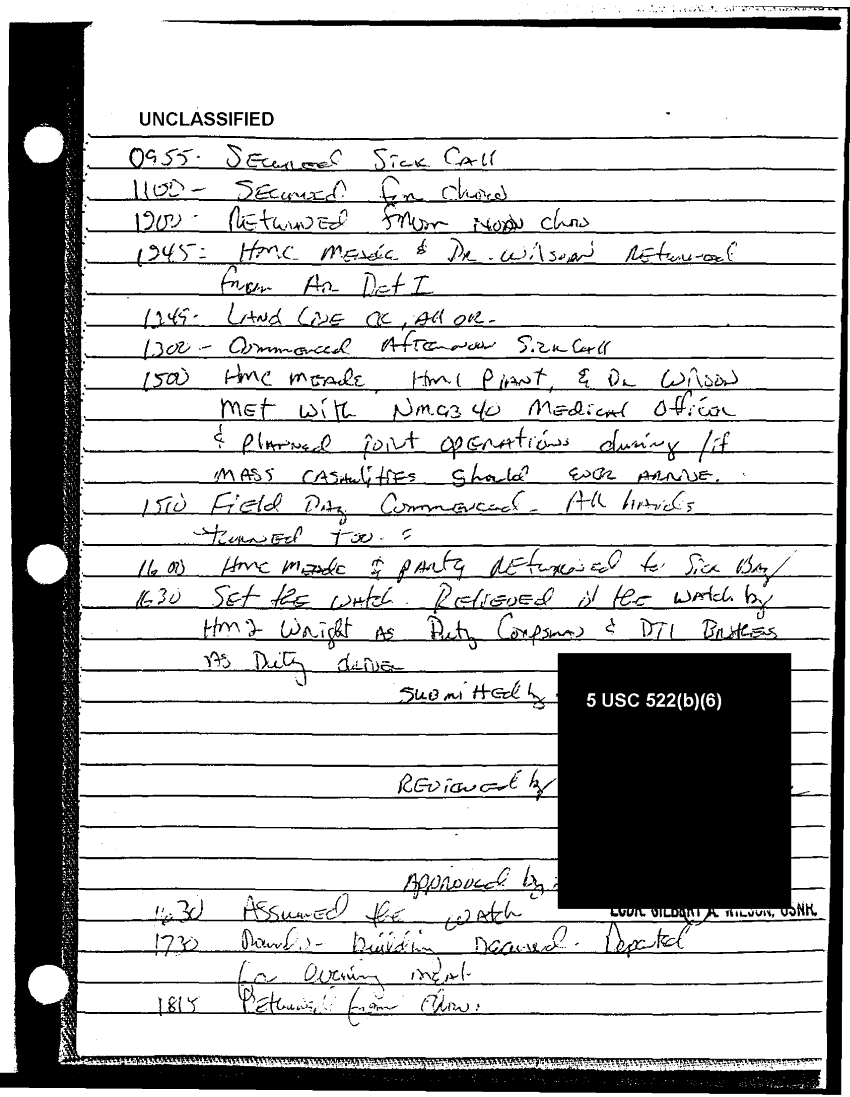 UNCLASSIFIED
0955- Secured Sick Call
1100 - Secured for chow
1200- Returned from noon chow
1245: HMC Meade & Dr. Wilson Returned
from Air Det I
1249- Land Line CK, All OK-
1300 - Commenced Afternoon Sick Call
1500 HMC Meade, HM1 Plant, & Dr Wilson
Met with NMCB 40 Medical Officer
& planned joint operations during/if
mass casualities should ever arrive.
1510 Field Day Commenced. All hands
turned too.
1600 HMC Meade & party Returned to Sick Bay
1630 Set the watch. Relieved of the watch by
HM2 Wright as Duty Corpsman & DT1
as Duty driver
Submitted by
5 USC 522(b)(6)
Reviewed by
Approved by:
LCDR. GILBERT A. WILSON, USNR.
1630 Assumed the watch
1730 Rounds- building secured. Departed
for evening meal.
1815 Returned from chow.